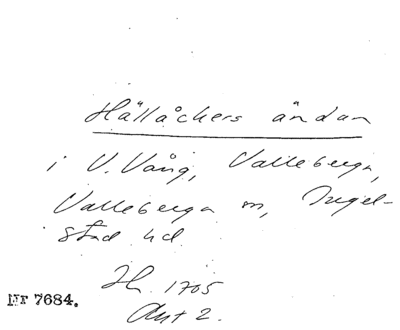 Hällåckers ändan
i V. Vång, Valleberga,
Valleberga sn, Ingel-
stad hd
Jh. 1705
Akt 2.
Nr 7684.